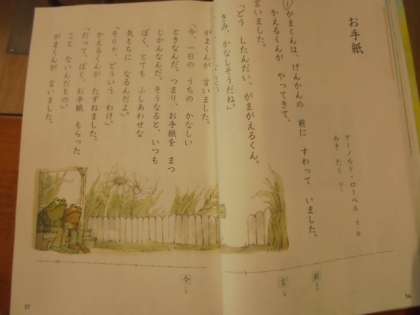 お手紙
アーノルド・ローベル 文・絵
みき たく やく
がまくんは、げんかんの 前に すわって いました。
かえるくんが やって きて、
言いました。
「どう したんだい、がまがえるくん。
きみ、かなしそうだね。」
がまくんが 言いました。
「今、一日の うちの かなしい
ときなんだ。つまり、お手紙を まつ
じかんなんだ。そうなると、いつも
ぼく、とても ふしあわせな
気もちに なるんだよ。」
「そりゃ、どういう わけ。」
かえるくんが たずねました。
「だって、ぼく、お手紙 もらった
こと ないんだもの。」
がまくんが 言いました。
前
言
今